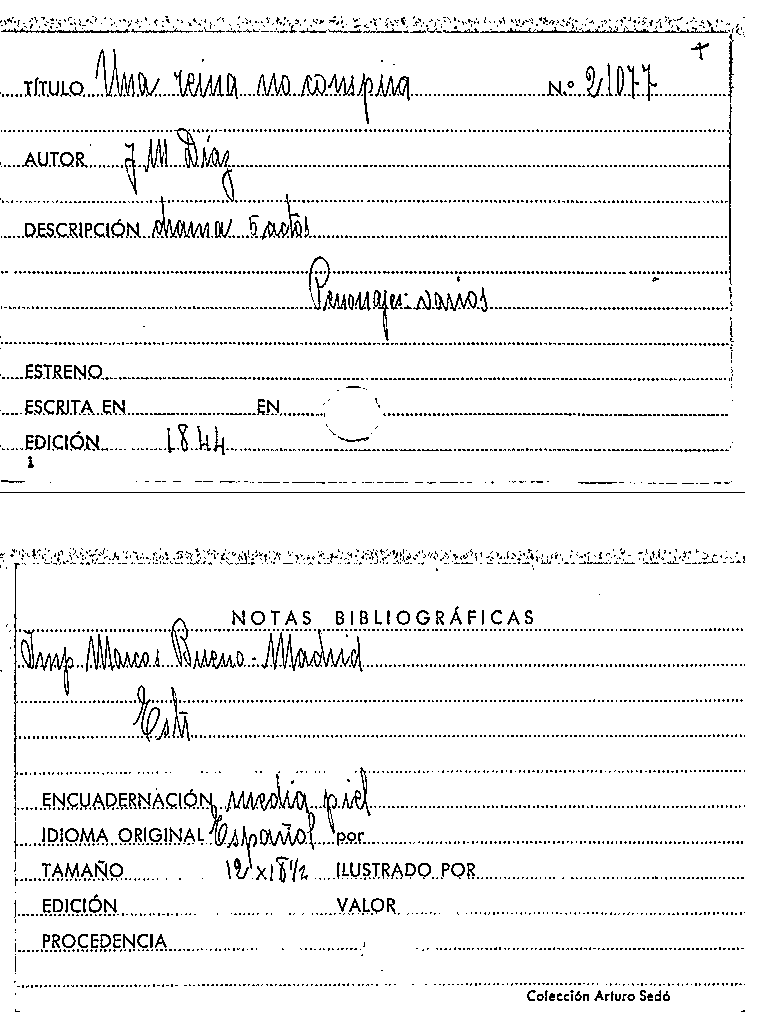 +
TÍTULO Una reina no conspira N.º 21077
AUTOR J M Díaz
DESCRIPCIÓN drama 5 actos
Personajes: varios
ESTRENO
ESCRITA EN EN
EDICIÓN 1844
1
NOTAS BIBLIOGRÁFICAS
Imp Marcos Bueno - Madrid
ENCUADERNACIÓN media piel
IDIOMA ORIGINAL Español por
TAMAÑO 12 x 18 1/2 ILUSTRADO POR
EDICIÓN VALOR
PROCEDENCIA
Colección Arturo Sedó